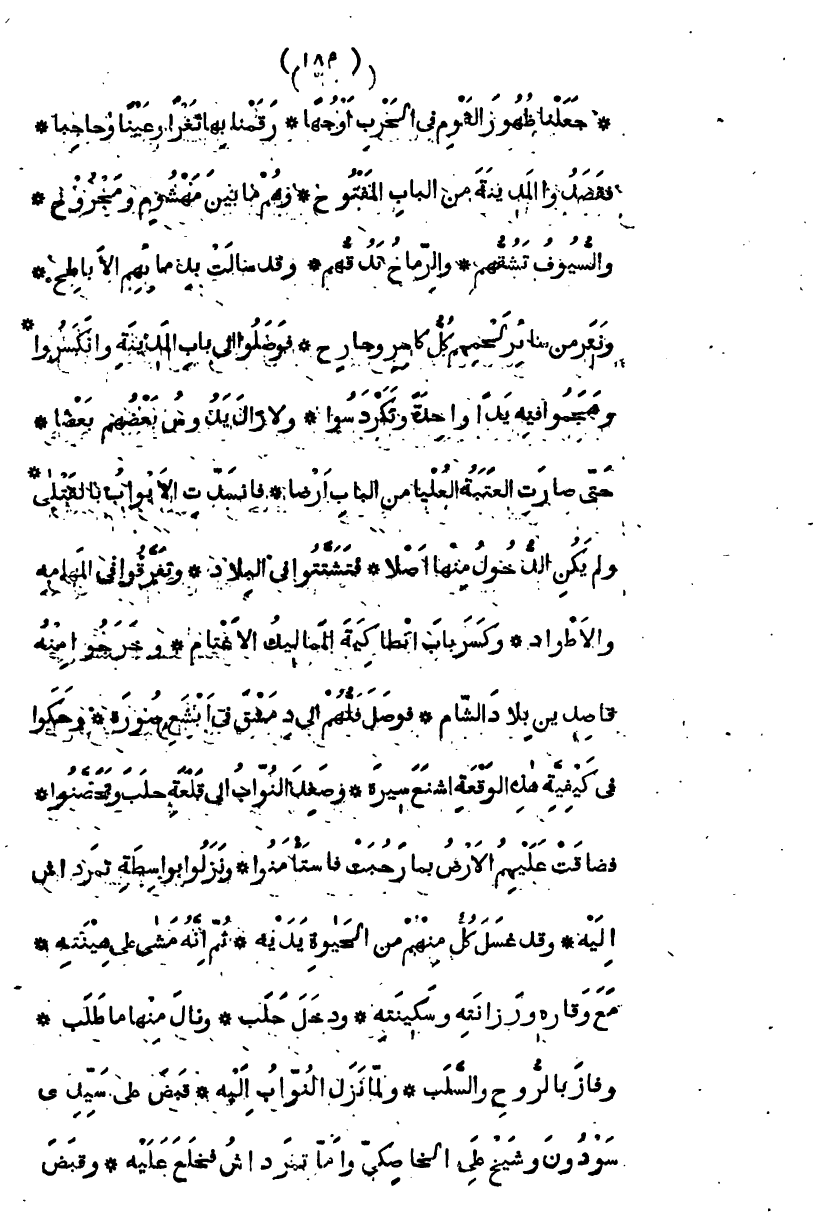 (١٨٩)
* جَعَلْنا ظُهُورَ القَوْمِ فى الحَرْبِ اَوْجُهًا * رَقَمْنا بِها ثَغْرًا وعَيْنًا وَحاجِبا *
فقَصَدُوا المَدينَةَ من البابِ المَفْتُوح * وهُم ما بَينَ مَهْشُومٍ ومَجْرُوْح *
والسُّيوفُ تَشُقُّهم * والرِّماحُ تَدُقُّهم * وقد سالَتْ بِدِمائِهِم الاَباطِح *
من سائِرِ لَحْمِهِم كُلُّ كاسِرٍ وجارِح * فوَصَلُوا الى بابِ المَدينَةِ وانْكَسَرُوا *
وهَجَمُوا فيهِ يَدًا واحِدَةً وتَكَرْدَسُوا * ولازالَ يَدُوسُ بَعْضُهم بَعْضًا *
حَتّى صارَتِ العَتَبَةُ العُلْيا من البابِ اَرْضا * فانسَدّت الاَبْوابُ بالقَتْلى *
ولم يَكُنِ الدُّخُولُ مِنْها اَصْلا * فتَشَتَّتُوا فى البِلاد * وتَفَرَّقُوا فى المَهامِه
والاَطْواد * وكَسَرَ بابَ انْطاكِيَةَ المَماليكُ الاَغْتام * وخَرَجُوا مِنْهُ
قاصِدينَ بِلادَ الشّام * فوصَلَ فَلُّهُمْ الى دِمَشْقَ فى اَبْشَعِ صُورَة * وحَكَوا
فى كَيْفِيَّةِ هٰذِه الوَقْعَةِ اشنَعَ سِيرَة * وصَعِدَ النُّوّابُ الى قَلْعَةِ حلَبَ وتَحَصَّنُوا *
فضاقَتْ عَلَيْهِمُ الاَرْضُ بما رَحُبَت فاستَأْمَنُوا * ونَزَلُوا بواسِطَةِ تمرداش
اِلَيْه * وقد غَسَلَ كُلٌّ مِنْهُمْ من الحَيٰوةِ يَدَيْه * ثُمّ اَنَّهُ مَشٰى على هِينَتِه *
مَعَ وَقارِه ورَزانَتِه وسَكينَتِه * ودخَلَ حَلَب * ونالَ مِنْها ما طَلَب *
وفازَ بالرُّوحِ والسَّلَب * ولَمّا نَزَل النُّوّابُ اِلَيْه * قبَضَ على سَيِّدِى
سَوْدُونَ وشَيْخ عَلَى الخاصِكىّ واَمّا تمرداشُ فخلَعَ عَلَيْه * وقبَضَ